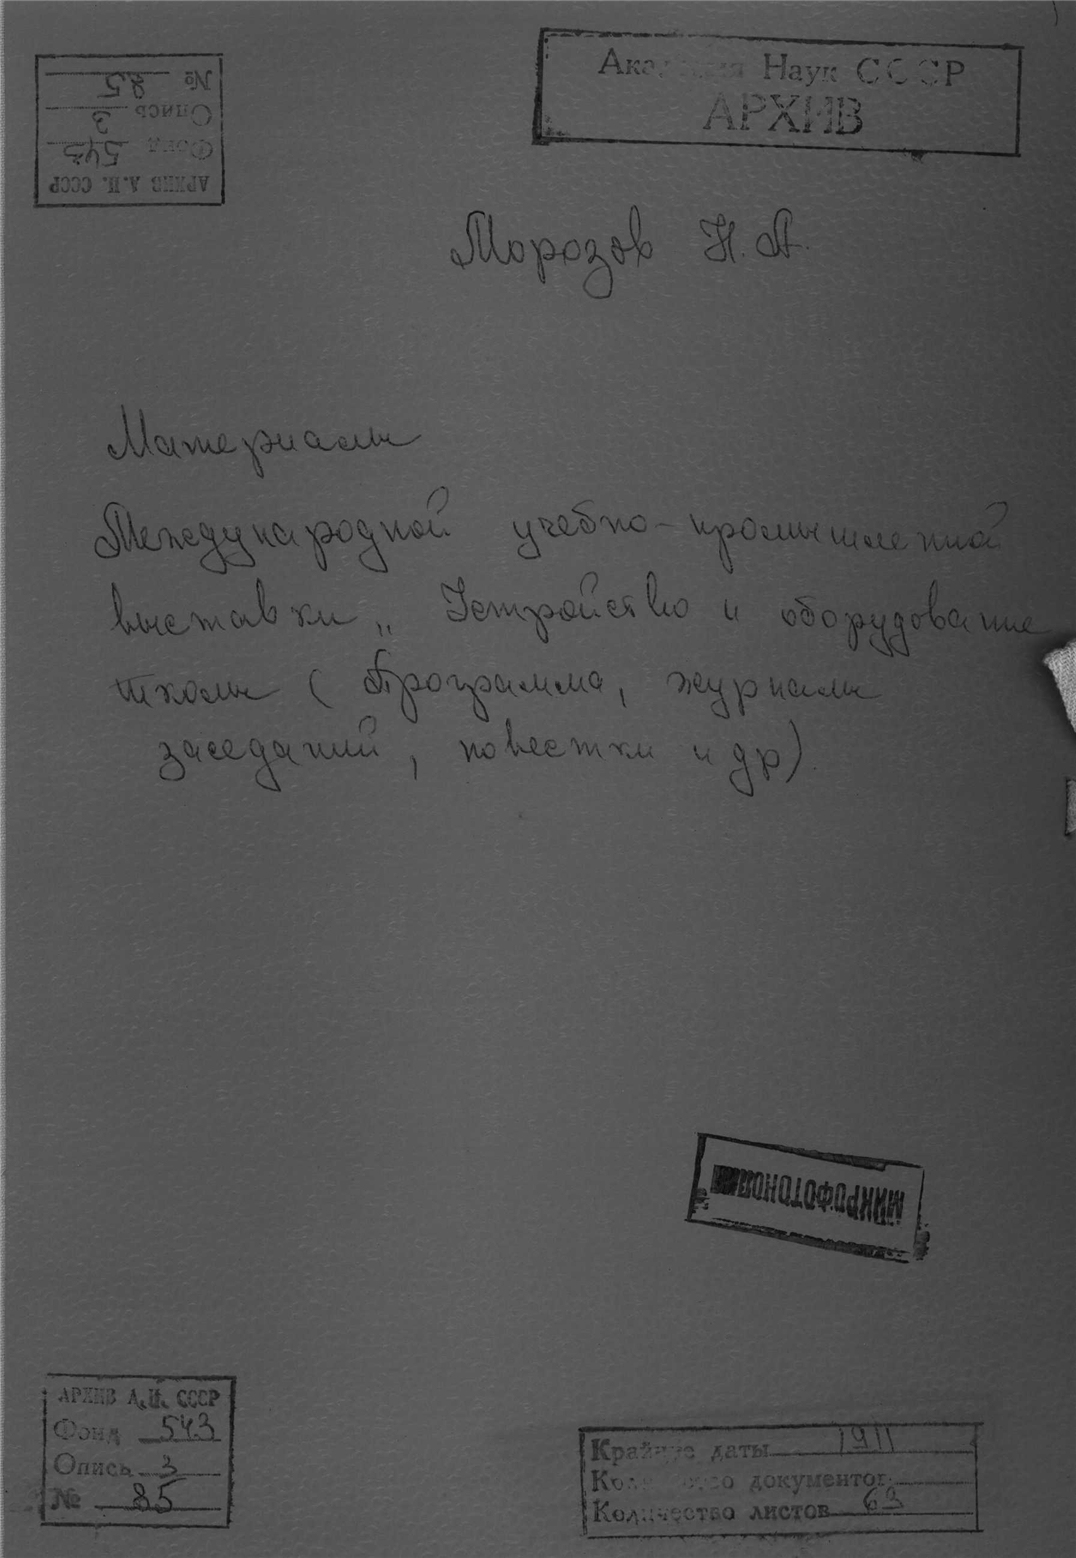 Академия Наук СССР
АРХИВ
№ 85
Опись 3
Фонд 543
АРХИВ А.Н. СССР
Морозов Н. А.
Материалы
Международной учебно-промышленной
выставки „ Устройство и оборудование
школы ( Программа, журналы
заседаний, повестки и др)
МИКРОФОТОКОПИ
АРХИВ А.Н. СССР
Фонд 543
Опись 3
№ 85
Крайние даты 1911
Количество документов
Количество листов 63